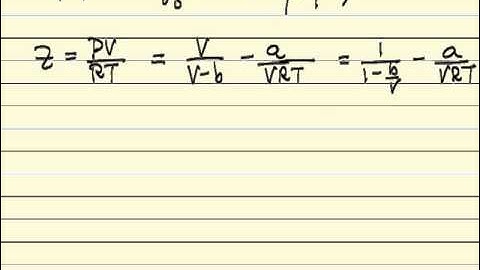 Z = PV/RT = V/(V-b) - a/(VRT) = 1/(1-b/V) - a/(VRT)